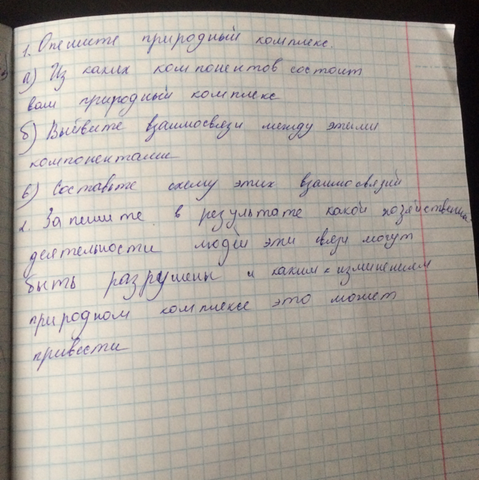 1. Опешите природный комплекс.
а) Из каких компонентов состоит
вам природный комплекс
б) Выевите взаимосвязи между этими
компонентами
в) Составьте схему этих взаимосвязий
2. Запешите в результате какой хозяйственна
деятельности людей эти связи могут
быть разрушены и каким изминениям
природном комплексе это может
привести